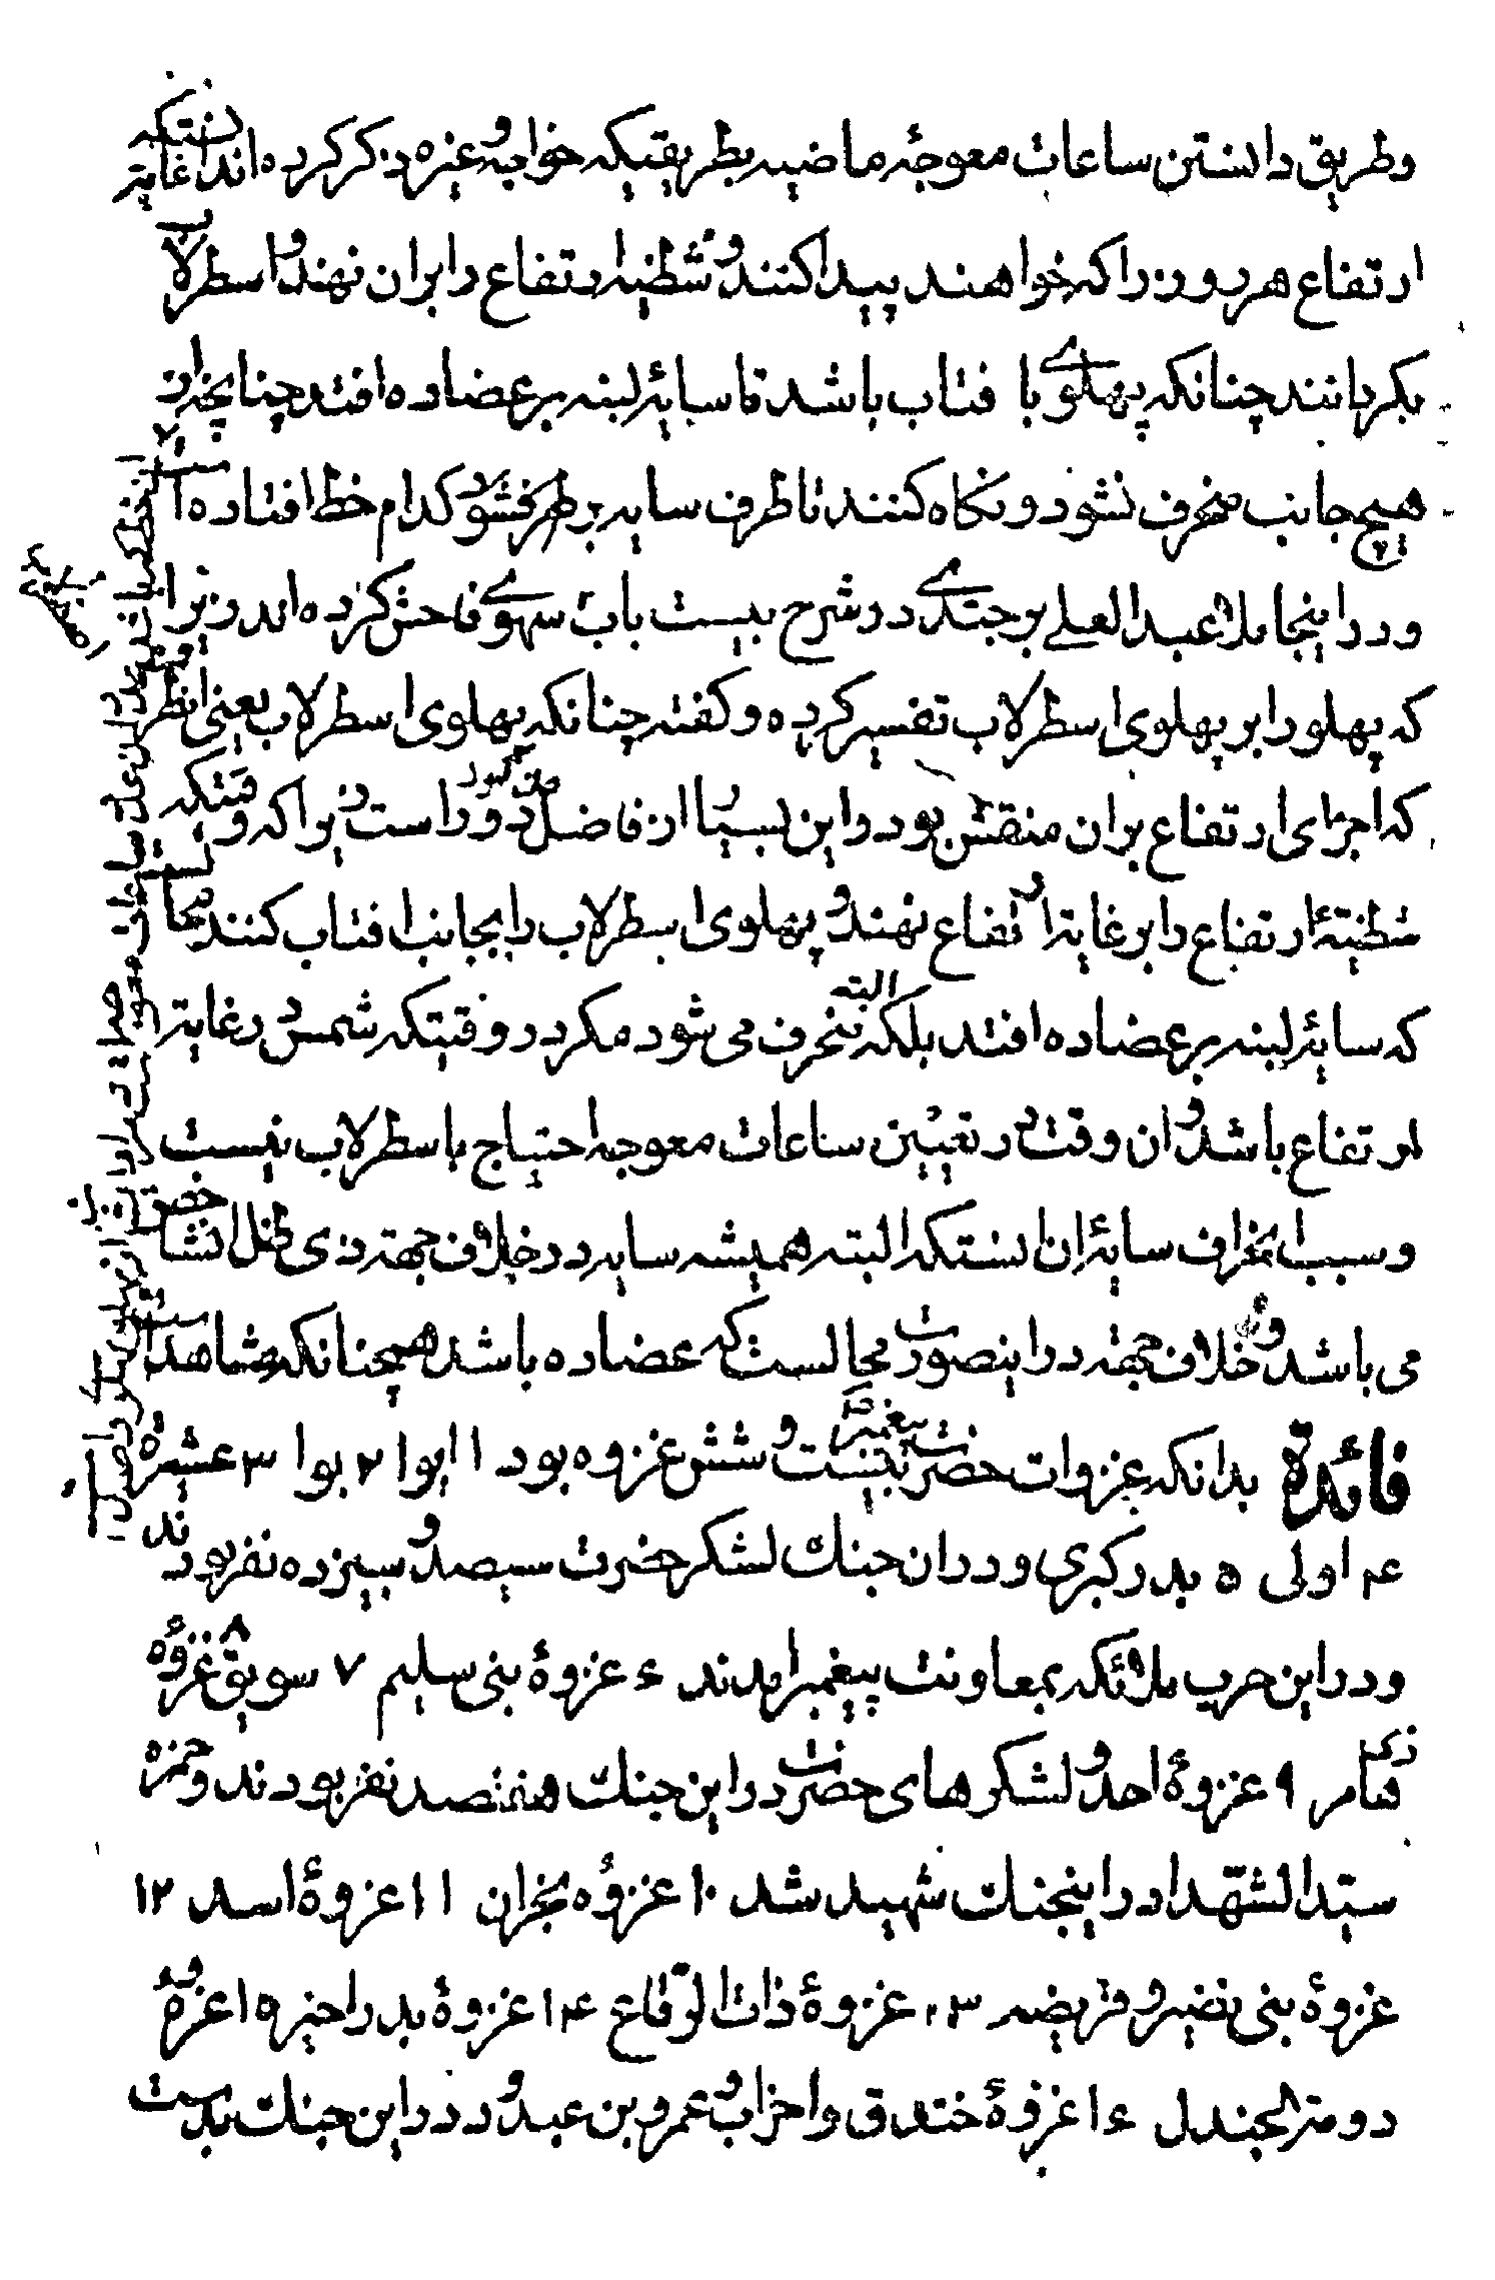 وطریق دانستن ساعات معوجهٔ ماضیه بطریقیکه خواجه و غیره ذکر کرده اند انستکه غایة
ارتفاع هر روز را که خواهند پیدا کنند و شظیهٔ ارتفاع را بران نهند و اسطرلاب
بکردانند چنانکه پهلوے با فتاب باشد تا سایهٔ لبنه بر عضاده افتد چنانچه از
هیچ جانب منحرف نشود و نکاه کنند تا طرف سایه بر طرفش و کدام خط افتاده است
و در اینجا ملا عبد العلے برجندے در شرح بیست باب سهوے فاحش کرده اند زیرا
که پهلو را بر پهلوی اسطرلاب تفسیر کرده و کفته چنانکه پهلوی اسطرلاب یعنی انطرف
که اجزای ارتفاع بران منقش بود و این بسیار از فاضل مذکور دور است زیرا که وقتیکه
شظیهٔ ارتفاع را بر غایة ارتفاع نهند و پهلوی اسطرلاب را بجانب افتاب کنند محالست
که سایهٔ لبنه بر عضاده افتد بلکه البته منحرف می شود مکر در وقتیکه شمس در غایة
ارتفاع باشد و ان وقت در تعیین ساعات معوجه احتیاج باسطرلاب نیست
و سبب انحراف سایهٔ ان انستکه البته همیشه سایه در خلاف جهة ذی ظل انشاخص
می باشد و خلاف جهة در اینصورت محالست که عضاده باشد همچنانکه مشاهد است
فائدة بدانکه غزوات حضرت پیغمبر ص بیست و شش غزوه بود ۱ ابوا ۲ بوا ۳ عشیره
۴ اولی ۵ بدر کبری و در ان جنك لشکر حضرت سیصد و سیزده نفر بودند
و در این حرب ملائکه بمعاونت پیغمبر امدند ۶ غزوهٔ بنی سلیم ۷ سویق ۸ غزوهٔ
ذی امر ۹ غزوهٔ احد و لشکرهای حضرت در این جنك هفتصد نفر بودند و حمزه
سید الشهدا در اینجنك شهید شد ۱۰ غزوهٔ نجران ۱۱ غزوهٔ اسد ۱۲
غزوهٔ بنی نضیر و قریضه ۱۳ غزوهٔ ذات الرقاع ۱۴ غزوهٔ بدر اخیره ۱۵ غزوهٔ
دومة الجندل ۱۶ غزوهٔ خندق و احزاب و عمرو بن عبد ود در این جنك بدست